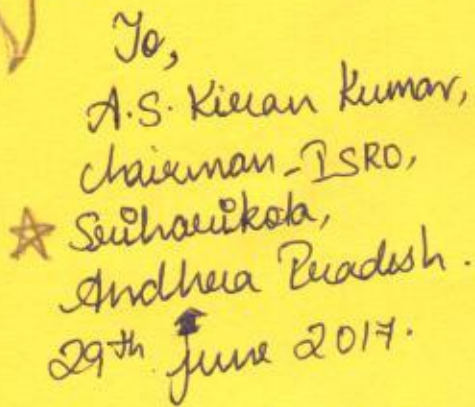 To,
A.S. Kiran Kumar,
Chairman-ISRO,
Sriharikota,
Andhra Pradesh.
29th June 2017.